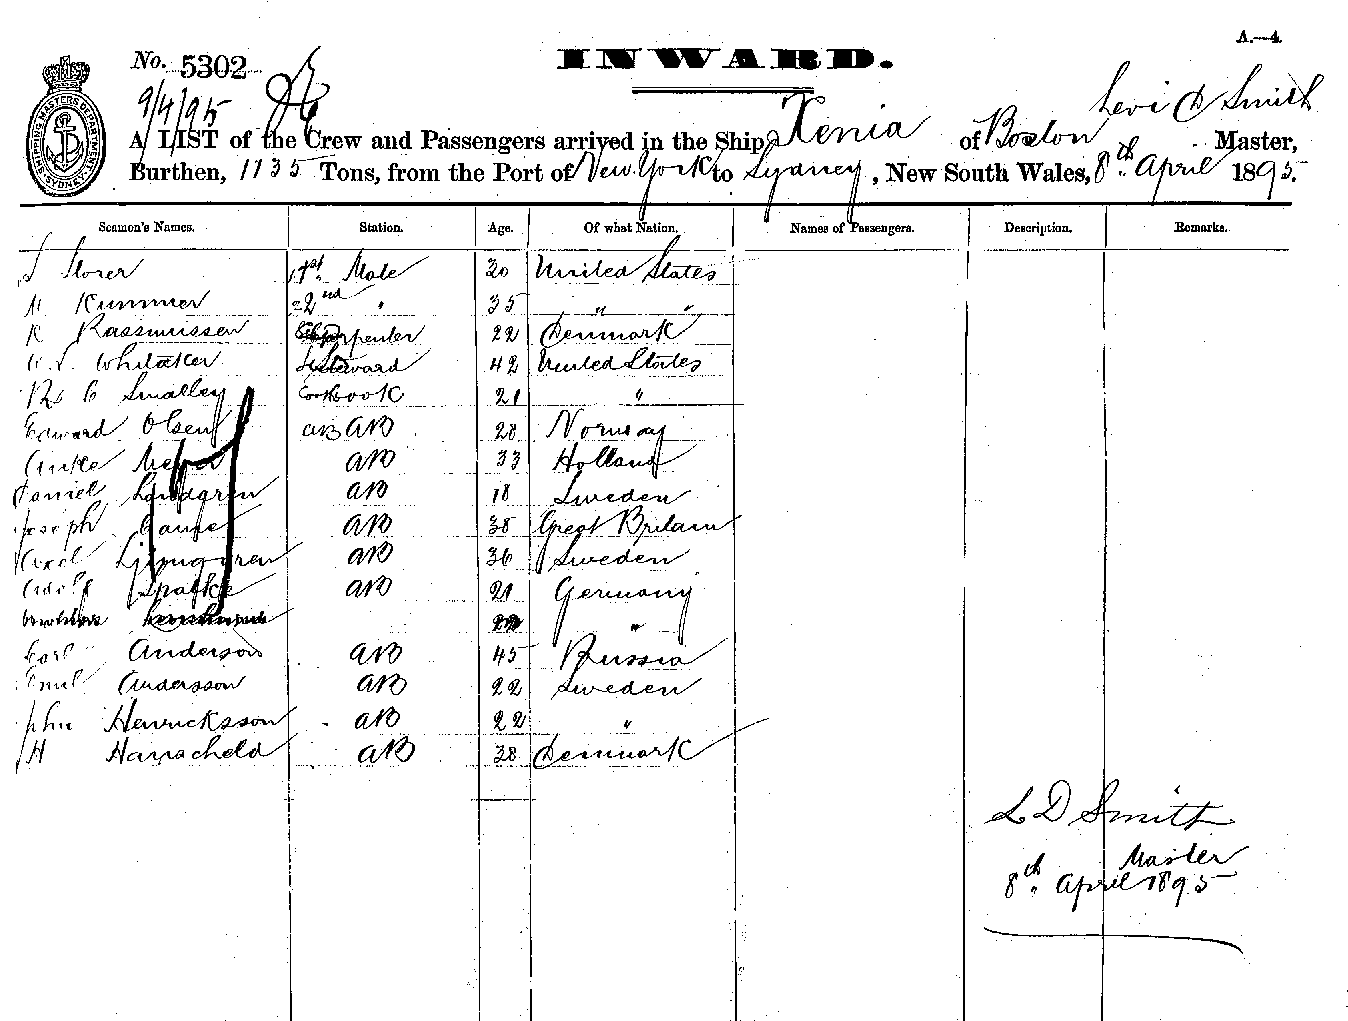 A.—4.
No. 5302
INWARD.
9/4/95
Levi D Smith
A LIST of the Crew and Passengers arrived in the Ship Xenia of Boston Master,
Burthen, 1135 Tons, from the Port of New York to Sydney, New South Wales, 8th April 1895.
SHIPPING MASTERS DEPARTMENT SYDNEY
Seamen's Names. Station. Age. Of what Nation. Names of Passengers. Description. Remarks.
Storer 1st Mate 30 United States
Kummer 2nd " 35 " "
K Rasmussen Carpenter 22 Denmark
Whitaker Steward 42 United States
Smalley Cook 21 "
Edward Olsen AB AB 28 Norway
Meyer AB 33 Holland
Daniel Lundgren AB 18 Sweden
Joseph AB 38 Great Britain
Axel Ljungren AB 36 Sweden
Adolf Spalke AB 21 Germany
"
Carl Anderson AB 45 Russia
Emil Andersson AB 22 Sweden
John Henricksson AB 22 "
H AB 38 Denmark
L D Smith
Master
8th April 1895